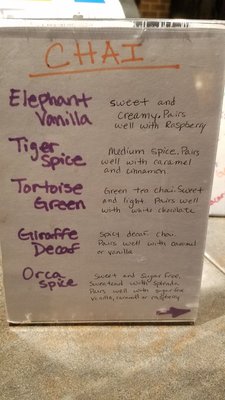 CHAI
Elephant
Vanilla
sweet and
creamy. Pairs
well with Raspberry
Tiger
Spice
Medium spice. Pairs
well with caramel
and cinnamon
Tortoise
Green
Green tea chai. Sweet
and light. Pairs well
with white chocolate
Giraffe
Decaf
Spicy decaf chai.
Pairs well with caramel
or vanilla
Orca
Spice
Sweet and sugar free,
Sweetend with splenda
Pairs well with sugar free
vanilla, caramel or raspberry